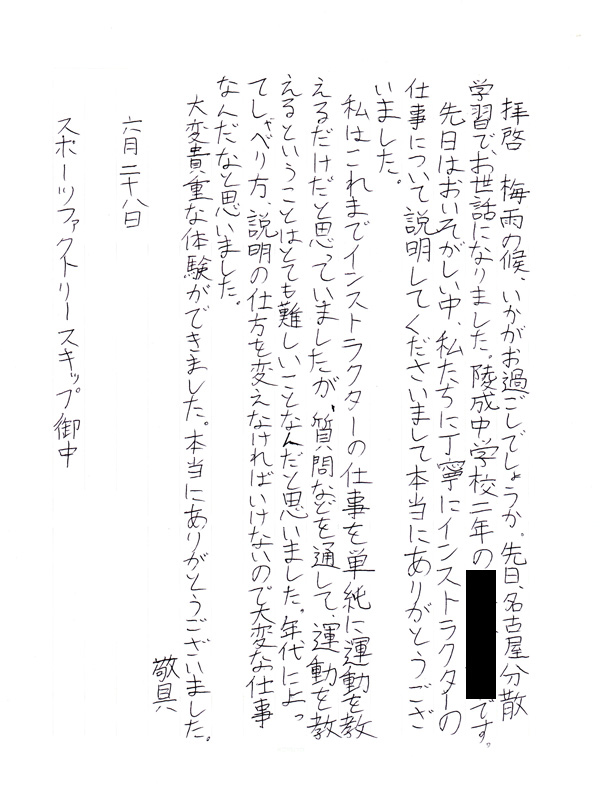 拝啓　梅雨の候、いかがお過ごしでしょうか。先日、名古屋分散
学習で、お世話になりました。陵成中学校二年の　　　です。
先日はおいそがしい中、私たちに丁寧にインストラクターの
仕事について説明してくださいまして本当にありがとうござ
いました。
私はこれまでインストラクターの仕事を単純に運動を教
えるだけだと思っていましたが、質問などを通して、運動を教
えるということはとても難しいことなんだと思いました。年代によっ
てしゃべり方、説明の仕方を変えなければいけないので大変な仕事
なんだなと思いました。
大変貴重な体験ができました。本当にありがとうございました。
敬具
六月二十八日
スポーツファクトリースキップ御中